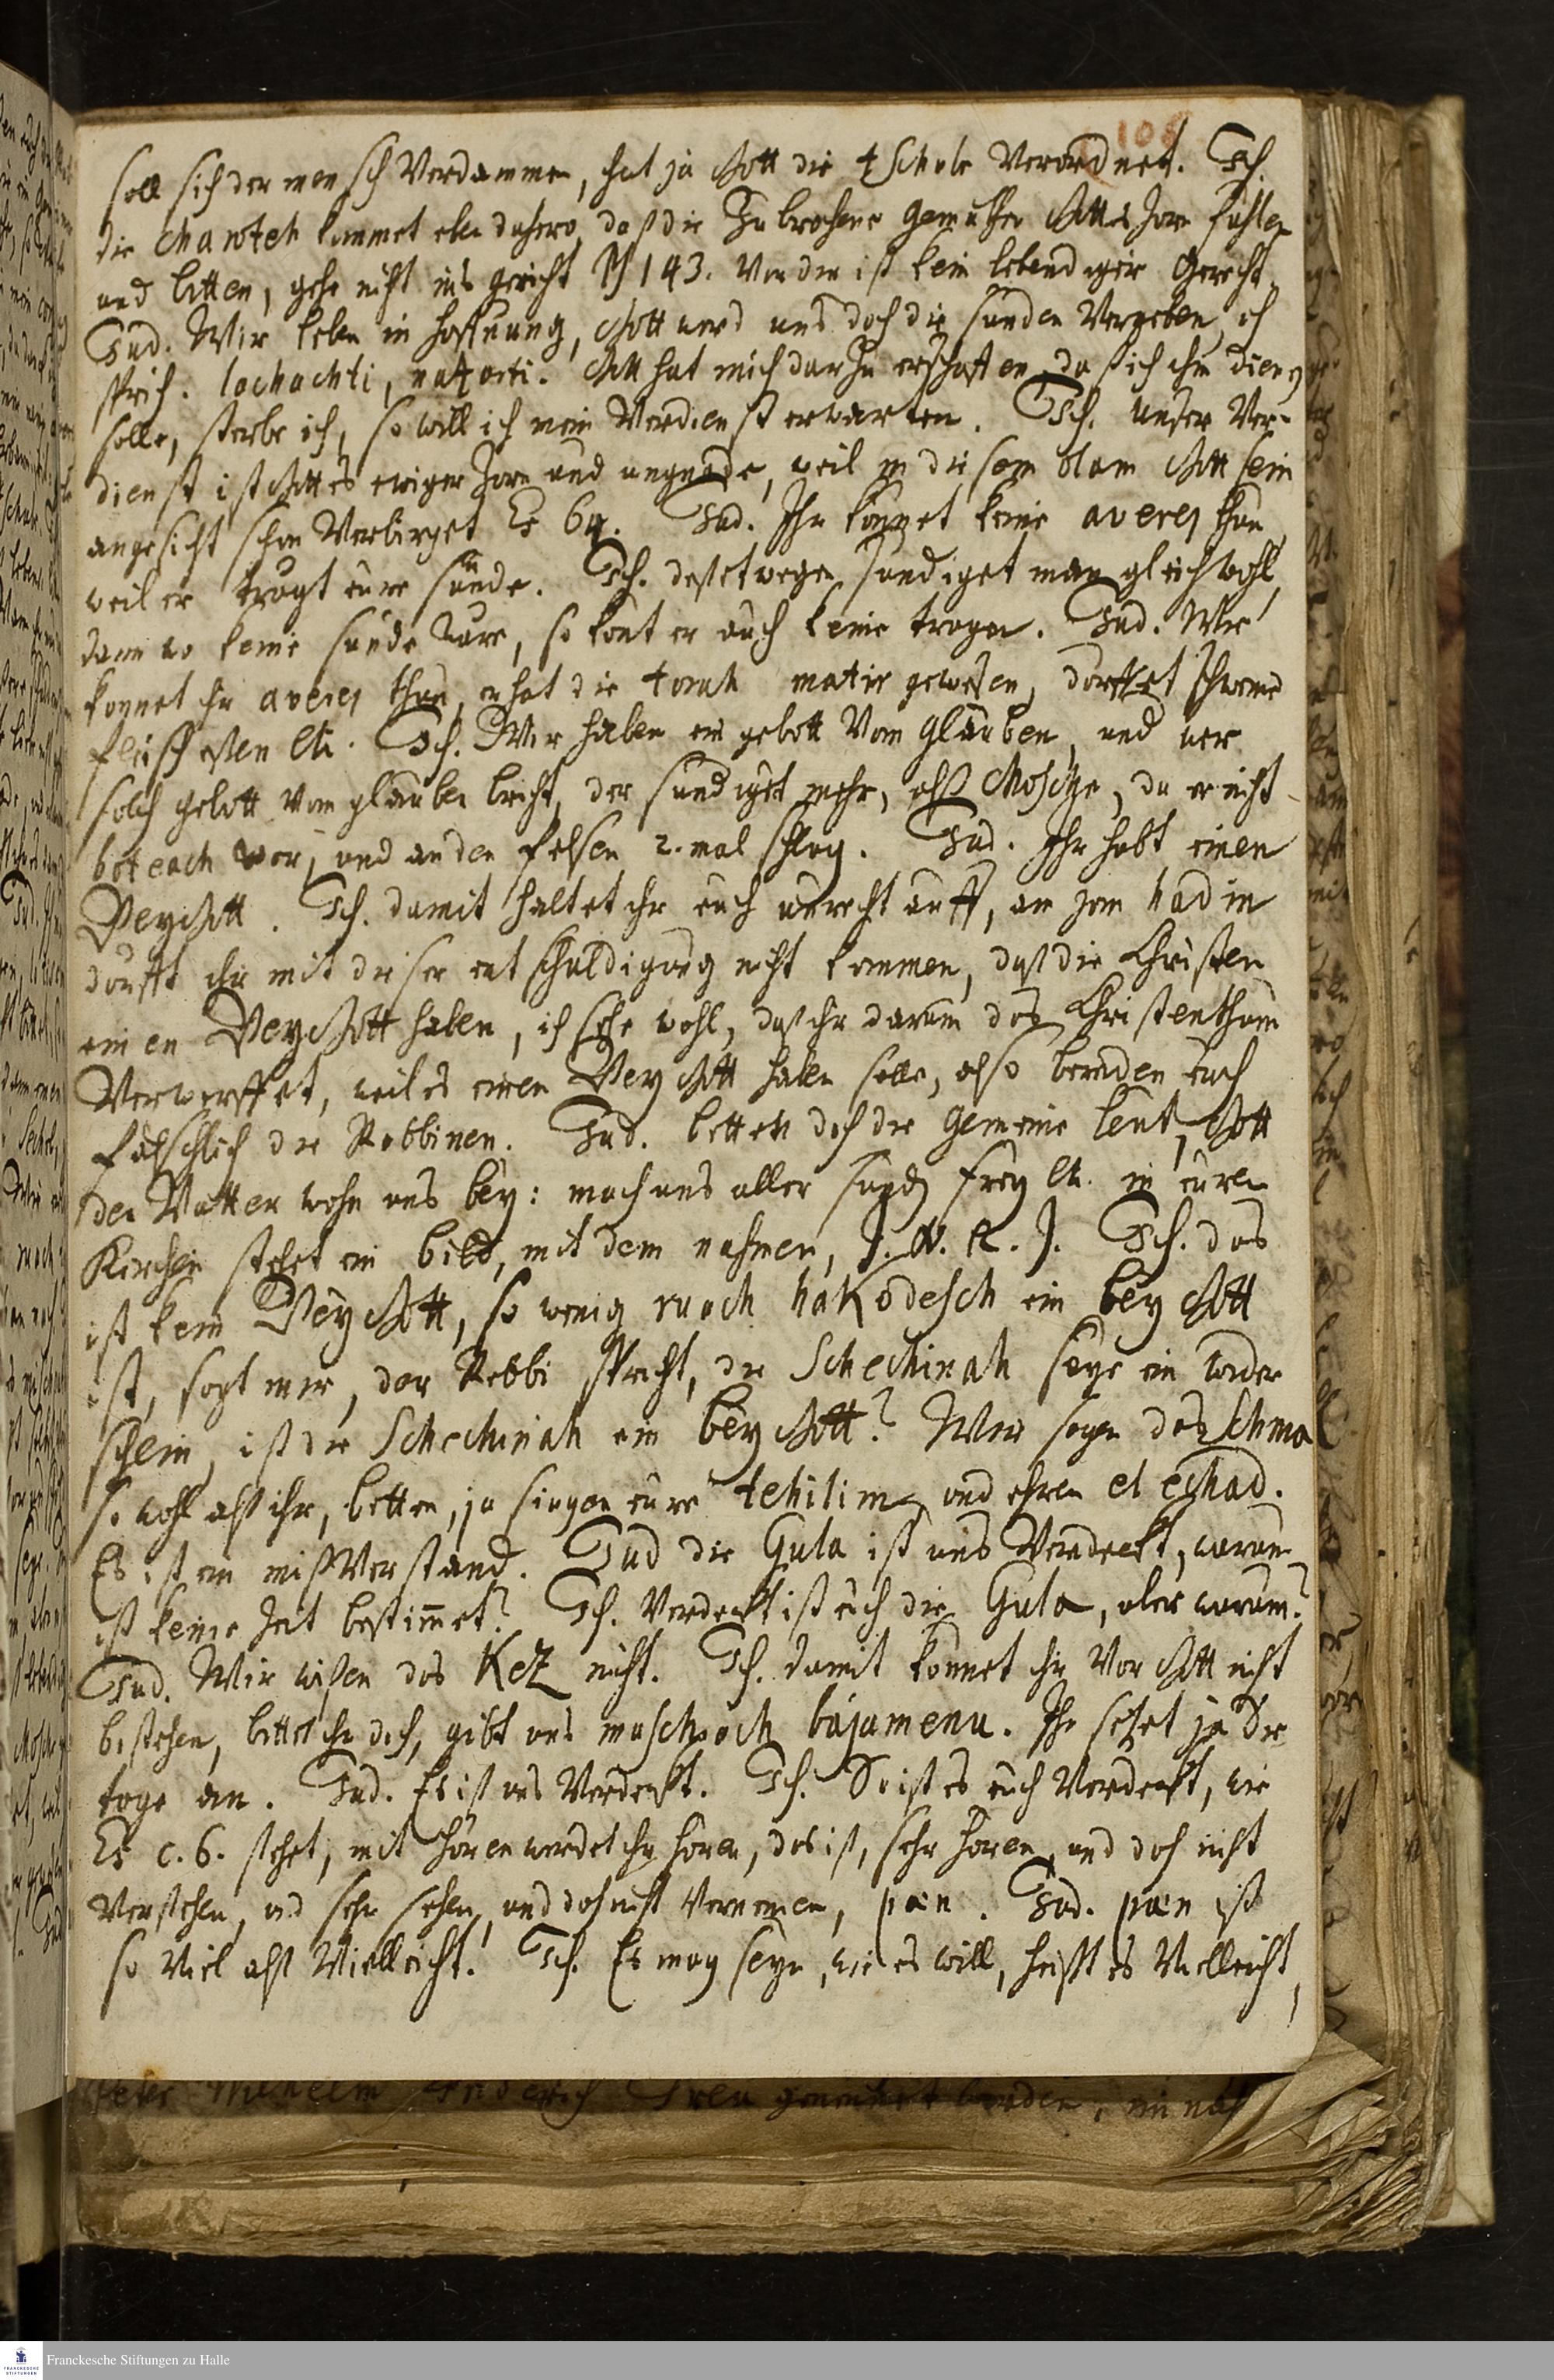 108
soll sich der mensch Verdammen, hat ja Gott die tschube Verordnet. Ich.
die charoteh kommet eben dahero, daß die Zubrochene gemüther Gottes Zorn fühlen
und bitten, gehe nicht ins gericht Ps 143. Von den ist kein lebendiger Gerecht.
Jud. Wir leben in hoffnung, Gott werd uns doch die sünden Vergeben, ich
sprich. lochachti, Gott hat mich darzu erschaffen, daß ich ihm dienen
solle, sterbe ich, so will ich mein Verdienst erwarten. Ich. Unser Ver-
dienst ist Gottes ewiger Zorn und ungnade, weil in diesem olam Gott sein
angesicht schon Verbirget Es 64. Jud. Ihr könnet keine averes thun,
weil er tragt eure sünde. Ich. deßetwegen sündiget man gleichwohl,
dann wo keine sünde ware, so kont er auch keine tragen. Jud. Wie
könnet ihr averes thun, er hat die torah matir gewesen, dörffet schweine
fleisch eßen etc. Ich. Wir haben ein gebott Vom Glauben, und wer
solch gebott Vom glauben bricht, der sündiget mehr, alß Mosche, da er nicht
boteach war, und an den felsen 2. mal schlug. Jud. Ihr habt einen
Beygott. Ich. damit haltet ihr euch unrecht auff, am jom hadin
dörfft ihr mit dieser entschuldigung nicht kommen, daß die Christen
einen BeyGott haben, ich sehe wohl, daß ihr darum das Christenthum
Verwerffet, weil es einen BeyGott haben solle, also bereden euch
fälschlich die Rabbinen. Jud. betten doch die Gemeine leut, Gott
der Vatter wohn uns bey: mach uns aller sünden frey etc. in euren
Kirchen stehet ein bild, mit dem nahmen, J. N. R. J. Ich. das
ist kein BeyGott, so wenig ruach haKodesch ein beyGott
ist, sagt mir, der Rabbi spricht, die Schechinah seye ein wider
schein, ist die Schechinah ein beyGott? Wir sagen das Schma
so wohl alß ihr, betten, ja singen eure tehilim, und ehren el echad.
Es ist ein mißVerstand. Jud die Gula ist uns Verdeckt, warum
ist keine Zeit bestimmet? Ich. Verdeckt ist euch die Gula, aber warum?
Jud. Wir wißen das Kez nicht. Ich. damit könnet ihr Vor Gott nicht
bestehen, bittet ihr doch, gibt uns maschiach bajamenu. Ihr setzet ja die
tage an. Jud. Es ist uns Verdeckt. Ich. So ist es euch Verdeckt, wie
Es c. 6. stehet, mit hören werdet ihr hören, das ist, sehr hören, und doch nicht
Verstehen, und sehr sehen, und doch nicht Vernemen, pæn. Jud. pæn ist
so Viel alß Vielleicht. Ich. Es mag seyn, wie es will, heißt es Vielleicht,
Franckesche Stiftungen zu Halle